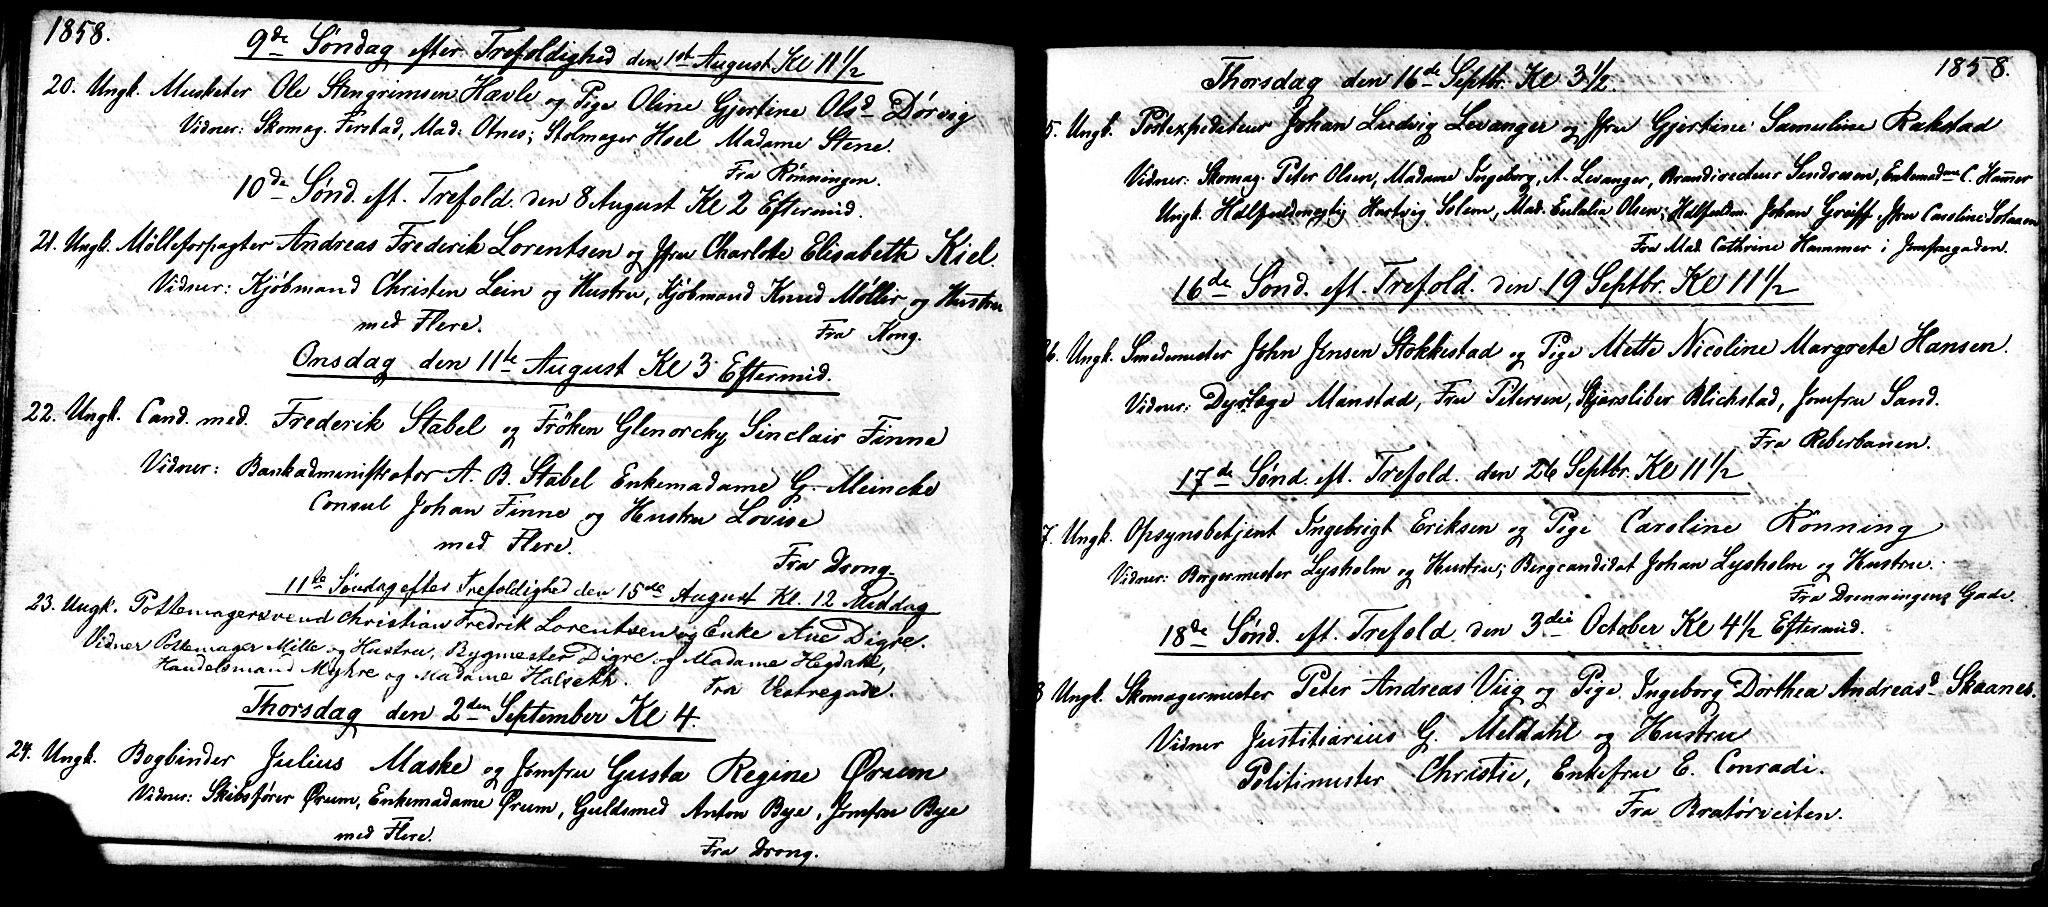 1858.
9de Søndag efter Trefoldighed den 1st August Kl 11 1/2
20. Ungk. Musketer Ole Stengrimsen Havle og Pige Oline Gjertine Olsd Dørvig
Vidner: Skomag. Ferstad, Mad: Otnes; Stolmager Hoel Madame Stene.
Fra Rønningen.
10de Sønd. eft. Trefold. den 8 August Kl 2 Eftermid.
21. Ungk. Mølleforpagter Andreas Frederik Lorentsen og Jfru Charlotte Elisabeth Kiel.
Vidner: Kjøbmand Christen Lein og Hustru, Kjøbmand Knud Møller og Hustru
med Flere. Fra Kong.
Onsdag den 11te August Kl 3 Eftermid.
22. Ungk. Cand. med. Frederik Stabel og Frøken Glenorchy Sinclair Finne
Vidner: Bankadministrator A. B. Stabel Enkemadame G. Meincke
Consul Johan Finne og Hustru Lovise
med Flere.
Fra Drong.
11te Søndag efter Trefoldighed den 15de August Kl. 12 Middag
23. Ungk. Pottemagersvend Christian Fredrik Lorentsen og Enke Ane Digre.
Vidner Pottemager Mille og Hustru, Bygmester Digre og Madame Hegdahl,
Handelsmand Myhre og Madame Halseth. Fra Vestregade.
Thorsdag den 2den September Kl 4.
24. Ungk. Bogbinder Julius Maske og Jomfru Gusta Regine Ørum
Vidner: Skibsfører Ørum, Enkemadame Ørum, Guldsmed Anton Bye, Jomfru Bye
med Flere.
Fra Drong.
1858.
Thorsdag den 16de Septbr. Kl 3 1/2.
5. Ungk. Postexpediteur Johan Ludvig Levanger og Jfru Gjertine Samuline Rakstad
Vidner: Skomag. Peter Olsen, Madame Ingeborg, A. Levanger, Brandirecteur Sendresen, Enkemadme C. Hammer
Ungk. Hartvig Solem, Mad. Eulalia Olsen; Johan Greiff, Jfru Caroline
Fra Mad Cathrine Hammer i Jomfrugaden.
16de Sønd. eft. Trefold. den 19 Septbr. Kl 11 1/2
26. Ungk. Smedemester John Jensen Stokkestad og Pige Mette Nicoline Margrete Hansen.
Vidner: Dyrlæge Manstad, Fru Petersen, Skjærsliber Blichstad, Jomfru Sand.
Fra Reberbanen.
17de Sønd. eft. Trefold. den 26 Septbr. Kl 11 1/2
7. Ungk. Opsynsbetjent Ingebrigt Eriksen og Pige Caroline Rønning
Vidner: Borgermester Lysholm og Hustru; Bergcandidat Johan Lysholm og Hustru.
Fra Dronningens Gade.
18de Sønd. eft. Trefold. den 3die October Kl 4 1/2 Eftermid.
8 Ungk. Skomagermester Peter Andreas Viig og Pige Ingeborg Dorthea Andreasd Skaanes.
Vidner Justitiarius G. Meldahl og Hustru
Politimester Christie, Enkefru E. Conradi.
Fra Bratørveiten.